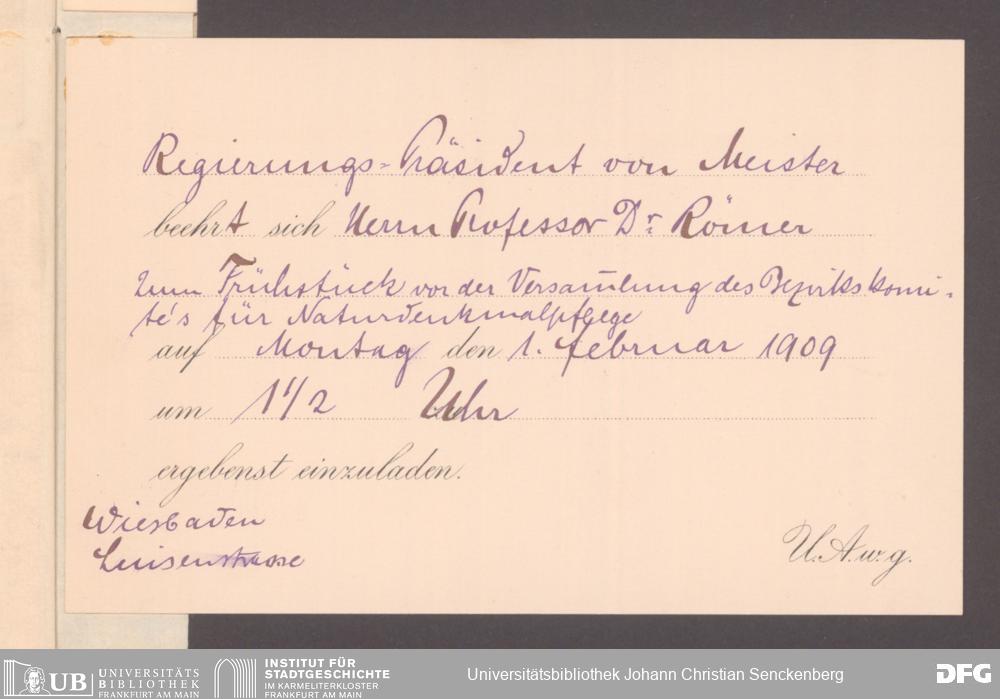 Regierungs-Präsident von Meister
beehrt sich Herrn Professor Dr. Römer
zum Frühstück vor der Versam̅lung des Bezirkskomi-
té's für Naturdenkmalpflege
auf Montag den 1. Februar 1909
um 1 1/2 Uhr
ergebenst einzuladen.
Wiesbaden
Luisenstrasse
U. A. w. g.
UB UNIVERSITÄTS
BIBLIOTHEK
FRANKFURT AM MAIN
INSTITUT FÜR
STADTGESCHICHTE
IM KARMELITERKLOSTER
FRANKFURT AM MAIN
Universitätsbibliothek Johann Christian Senckenberg
DFG